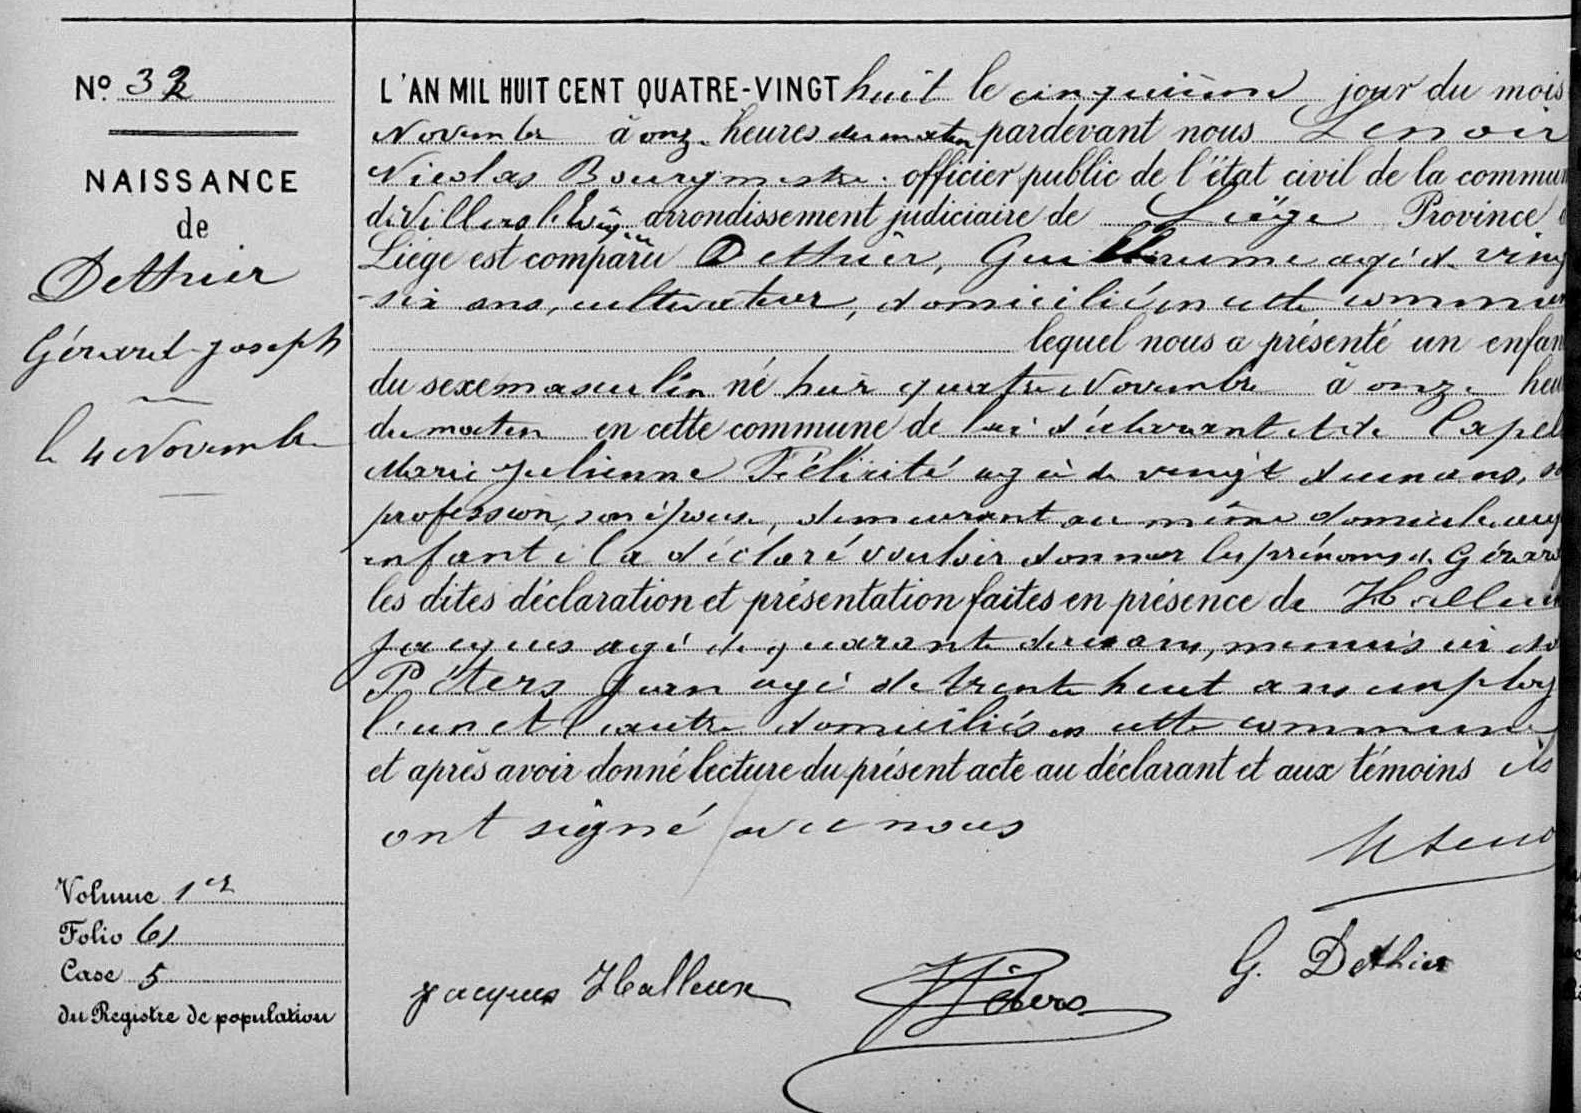 No. 32
NAISSANCE
de
Dethier
Gérard Joseph
le 4 Novembre
Volume 1er
Folio 61
Case 5
du Registre de population
L'AN MIL HUIT CENT QUATRE-VINGT huit le cinquième jour du mois
Novembre à onze heures du matin pardevant nous Lenoir
Nicolas Bourgmestre officier public de l'état civil de la commun
de Villers arrondissement judiciaire de Liége Province
Liége est comparu Dethier, Guillaume agé de ving
-six ans, cultivateur, domicilié en cette commun
lequel nous a présenté un enfan
du sexe masculin né hier quatre Novembre à onze heu
du matin en cette commune de lui déclarant et de Capel
Marie Julienne Félicité agée de vingt deux ans, s
profession, son épouse, demeurant au même domicile auq
enfant il a déclaré vouloir donner les prénoms de Gérard
les dites déclaration et présentation faites en présence de Halleux
Jacques agé de quarante deux ans, menuisier et
Péters Jean agé de trente huit ans employ
l'un et l'autre domiciliés en cette commune
et après avoir donné lecture du présent acte au déclarant et aux témoins ils
ont signé avec nous
Jacques Halleux
Péters
G. Dethier